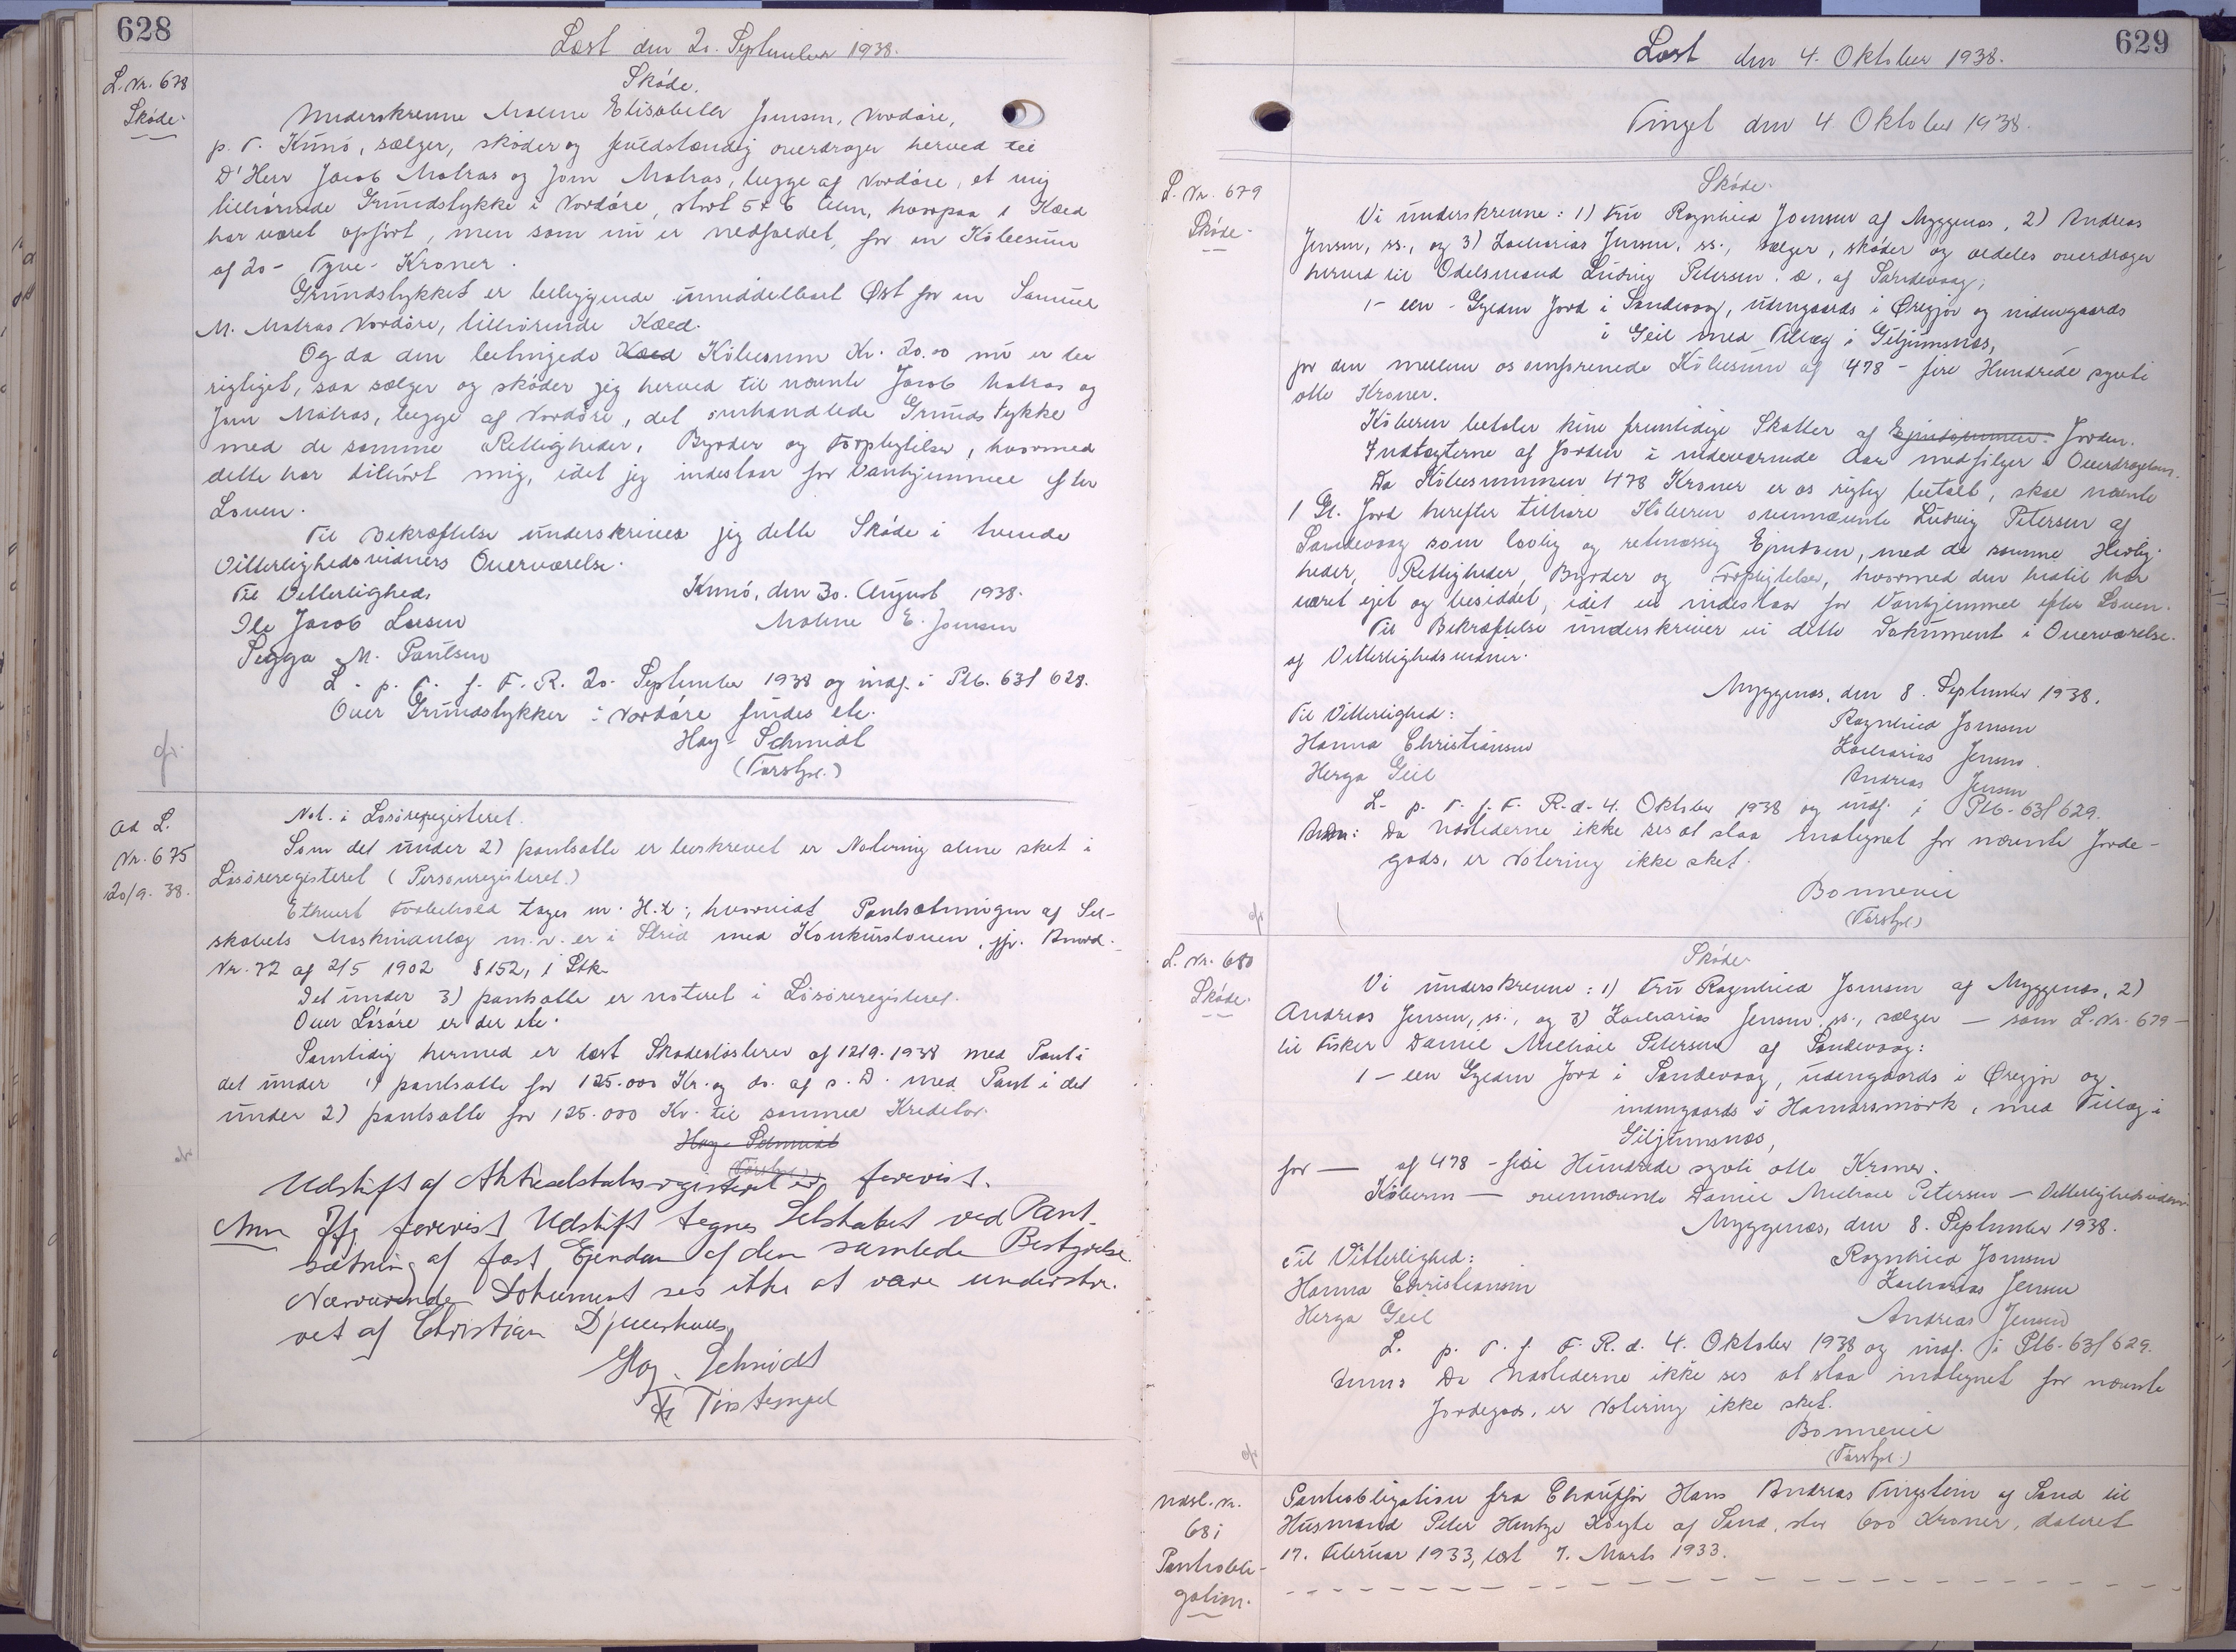 628
Læst den 20. September 1938.
L. Nr. 678
Skøde.
Skøde.
Underskrevne Malene Elisabeth Joensen, Nordøre,
p. t. Kunø, sælger, skøder og fuldstændig overdrager herved til
D'Herr Jacob Matras og Joen Matras, begge af Nordøre, et mig
tilhørende Grundstykke i Nordøre, stort 5 x 6 Alen, hvorpaa 1 Kæld
har været opført, men som nu er nedfaldet, for en Købesum
af 20 - Tyve - Kroner.
Grundstykket er beliggende umiddelbart Øst for en Samuel
M. Matras Nordøre, tilhørende Kæld.
Og da den betingede Kæld Købesum Kr. 20.00 nu er be
rigtiget, saa sælger og skøder jeg herved til nævnte Jacob Matras og
Joen Matras, begge af Nordøre, det omhandlede Grundstykke
med de samme Rettigheder, Byrder og Forpligtelser, hvormed
dette har tilhørt mig, idet jeg indestaar for Vanhjemmel efter
Loven.
Til Bekræftelse underskriver jeg dette Skøde i tvende
Vitterlighedsvidners Overværelse.
Til Vitterlighed: Kunø, den 30. August 1938.
Ole Jacob Malene E. Joensen
M. Paulsen
L. p. T. f. F. R. 20. September 1938 og indf. i Ptb. 63f 628.
Over Grundstykker i Nordøre findes etc.
Hay-Schmidt
(Tirstpl.)
ad L.
Nr. 675
20/9. 38.
Not. i Løsøreregisteret.
Som det under 2) pantsatte er beskrevet er Notering alene sket i
Løsøreregisteret (Personregisteret.)
Ethvert Forbehold tages m. H. t., hvorvidt Pantsætningen af Sel-
skabets Maskinanlæg m. v. er i Strid med Konkursloven, jfr. Anord.
Nr. 72 af 2/5 1902 § 152, 1 Stk.
Det under 3) pantsatte er noteret i Løsøreregisteret.
Over Løsøre er der etc.
Samtidig hermed er læst Skadesløsbrev af 12/9. 1938 med Pant i
det under 1) pantsatte for 125.000 Kr. og do. af s. D. med Pant i det
under 2) pantsatte for 125.000 Kr. til samme Kreditor.
Hay-Schmidt
(Tirstpl.)
Udskrift af Aktieselskabsregisteret er forevist.
Anm Iflg forevist Udskrift tegnes Selskabet ved Pant-
sætning af fast Ejendom af den samlede Bestyrelse.
Nærværende Dokument ses ikke at være underskre-
vet af Christian Djurhuus.
Hay-Schmidt
Tirstempel
629
Læst den 4. Oktober 1938.
Tinget den 4 Oktober 1938.
L. Nr. 679
Skøde.
Skøde.
Vi underskrevne: 1) Fru Ragnhild Joensen af Myggenæs, 2) Andreas
Jensen, ss., og 3) Zacharias Jensen, ss., sælger, skøder og aldeles overdrager
herved til Odelsmand Ludvig Petersen. æ. af Sandevaag,
1 - een - Gylden Jord i Sandevaag, udengaards i Øregjov og indengaards
i Geil med Tillæg i Giljumsnæs,
for den mellem os omforenede Købesum af 478 - fire Hundrede syvti
otte Kroner.
Køberen betaler kun fremtidige Skatter af Ejendommen. Jorden.
Indtægterne af Jorden i indeværende Aar medfølger Overdragelsen.
Da Købesummen 478 Kroner er os rigtig betalt, skal nævnte
1 Gl. Jord herefter tilhøre Køberen ovennævnte Ludvig Petersen af
Sandevaag som lovlig og retmæssig Ejendom, med de samme Herlig-
heder, Rettigheder, Byrder og Forpligtelser, hvormed den hidtil har
været ejet og besiddet, idet vi indestaar for Vanhjemmel efter Loven.
Til Bekræftelse underskriver vi dette Dokument i Overværelse
af Vitterlighedsvidner.
Myggenæs, den 8. September 1938.
Til Vitterlighed: Ragnhild Joensen
Hanna Christiansen Zacharias Jensen
Herga Geil Andreas Jensen
L. p. T. f. F. R. d. 4. Oktober 1938 og indf. i Ptb. 63f 629.
Anm: Da Udstederne ikke ses at staa indtegnet for nævnte Jorde-
gods, er Notering ikke sket.
Bonnevie
(Tirstpl.)
L. Nr. 680
Skøde.
Skøde
Vi underskrevne: 1) Fru Ragnhild Joensen af Myggenæs, 2)
Andreas Jensen, ss., og 3) Zacharias Jensen, ss., sælger — som L. Nr. 679 —
til Fisker Daniel Michael Petersen af Sandevaag:
1 - een Gylden Jord i Sandevaag, udengaards i Øregjov og
indengaards i Hamarsmørk, med Tillæg i
Giljumsnæs,
for — af 478 - fire Hundrede syvti otte Kroner.
Køberen — ovennævnte Daniel Michael Petersen — Vitterlighedsvidner.
Myggenæs, den 8. September 1938.
Til Vitterlighed: Ragnhild Joensen
Hanna Christiansen Zacharias Jensen
Herga Geil Andreas Jensen
L. p. T. f. F. R. d. 4. Oktober 1938 og indf. i Ptb. 63f 629.
Anm: Da Udstederne ikke ses at staa indtegnet for nævnte
Jordegods, er Notering ikke sket.
Bonnevie
(Tirstpl.)
Udsl. Nr.
681
Pantobli-
gation.
Pantobligation fra Chauffør Hans Andreas Tingstein af Sand til
Husmand Peter Hentze af Sand, stor 600 Kroner, dateret
17. Februar 1933, læst 7. Marts 1933.